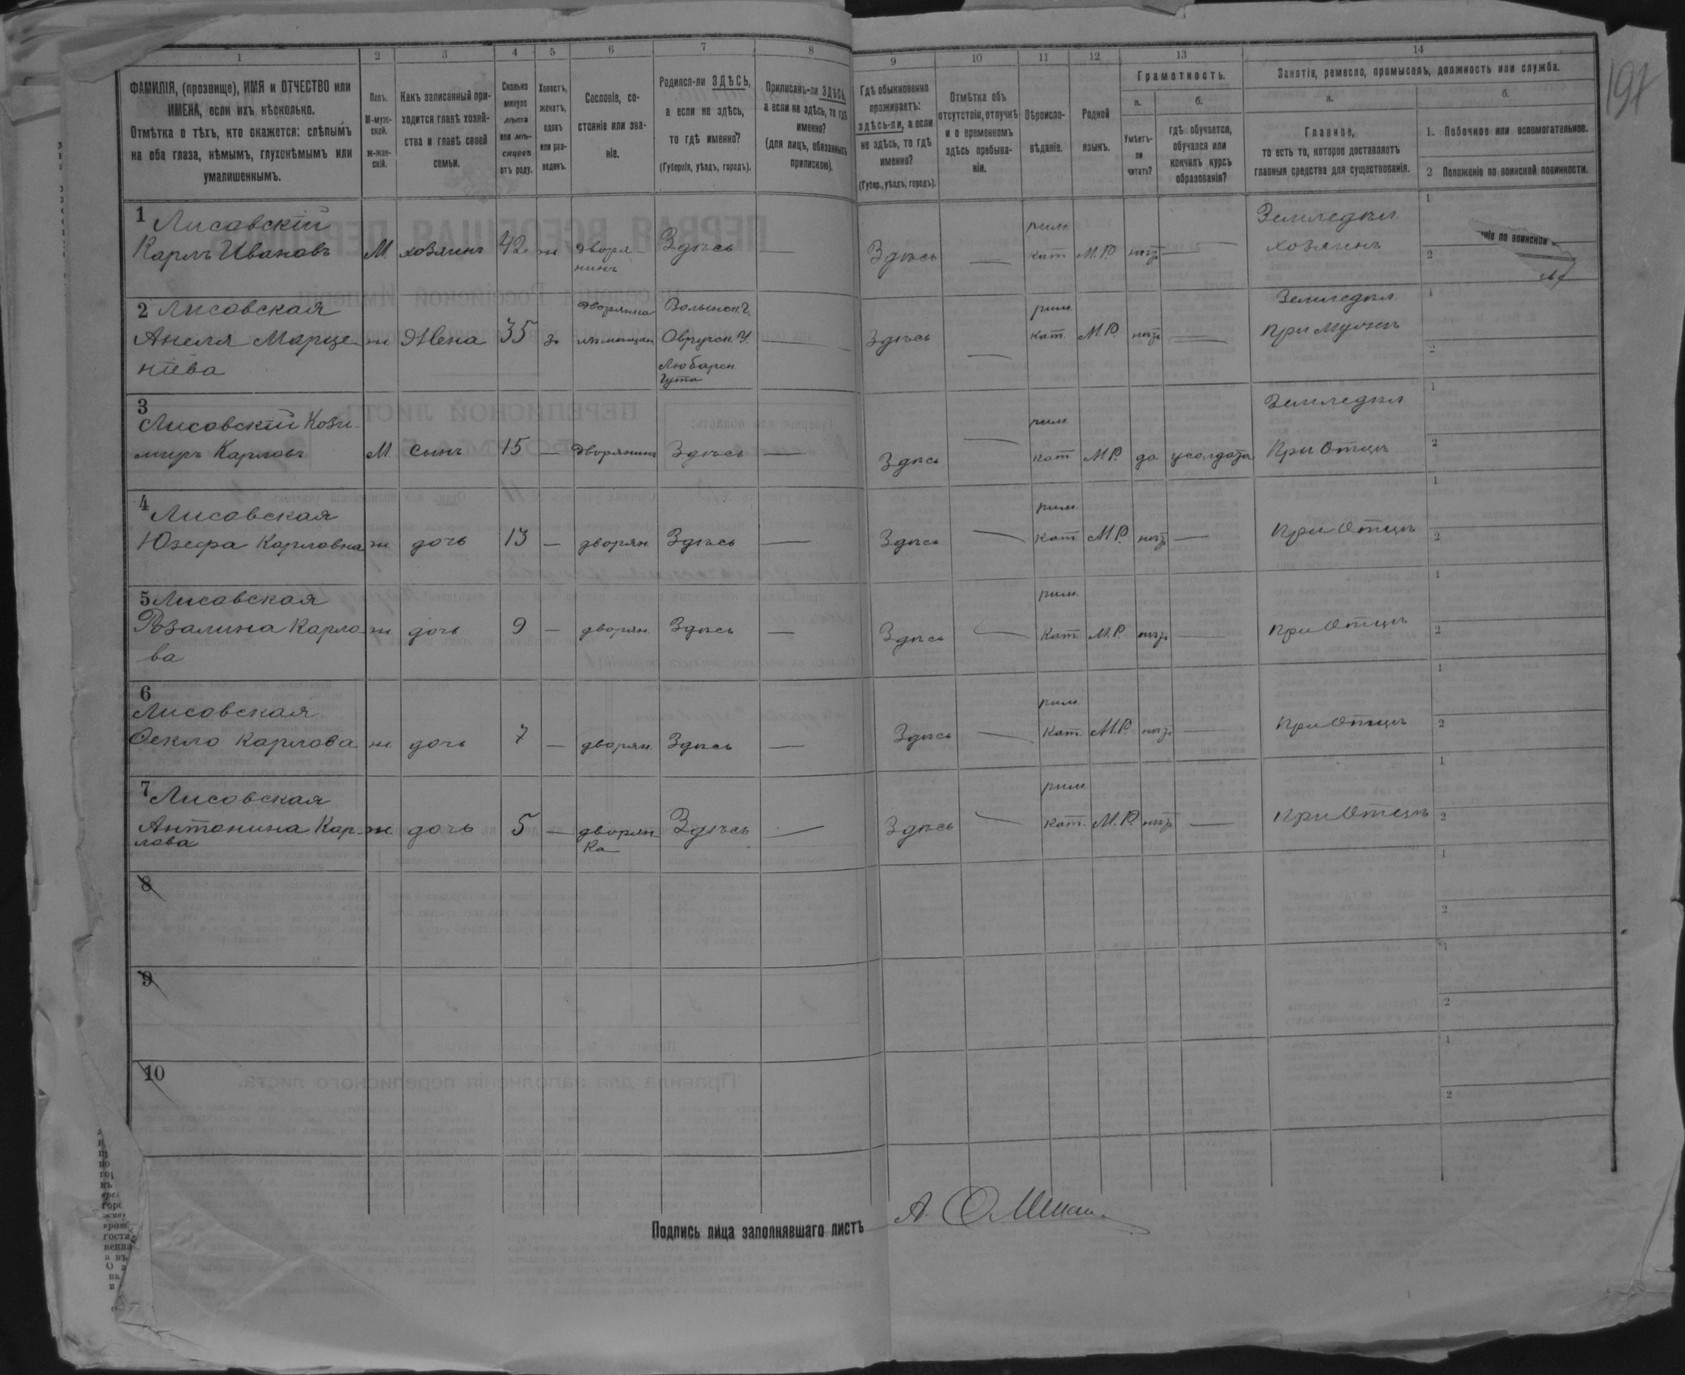 197
1 2 3 4 5 6 7 8 9 10 11 12 13 14
ФАМИЛІЯ, (прозвище), ИМЯ и ОТЧЕСТВО или
ИМЕНА, если ихъ нѣсколько.
Отмѣтка о тѣхъ, кто окажется: слѣпымъ
на оба глаза, нѣмымъ, глухонѣмымъ или
умалишеннымъ.
Полъ.
М-муж-
ской.
ж-жен-
скій.
Какъ записанный при-
ходится главѣ хозяй-
ства и главѣ своей
семьи.
Сколько
минуло
лѣтъ
или мѣ-
сяцевъ
отъ роду.
Холостъ,
женатъ,
вдовъ
или раз-
веденъ.
Сословіе, со-
стояніе или зва-
ніе.
Родился-ли ЗДѢСЬ,
а если не здѣсь,
то гдѣ именно?
(Губернія, уѣздъ, городъ).
Приписанъ-ли ЗДѢСЬ,
а если не здѣсь, то гдѣ
именно?
(для лицъ, обязанныхъ
припискою).
Гдѣ обыкновенно
проживаетъ:
здѣсь-ли, а если
не здѣсь, то гдѣ
именно?
(Губер., уѣздъ, городъ).
Отмѣтка объ
отсутствіи, отлучкѣ
и о временномъ
здѣсь пребыва-
ніи.
Вѣроиспо-
вѣданіе.
Родной
языкъ.
Грамотность.
а.
Умѣетъ-
ли
читать?
б.
Гдѣ обучается,
обучался или
кончилъ курсъ
образованія?
Занятіе, ремесло, промыселъ, должность или служба.
а.
Главное,
то есть то, которое доставляетъ
главныя средства для существованія.
б.
1. Побочное или вспомогательное.
2 Положеніе по воинской повинности.
1 Лисовскій
Карлъ Ивановъ М хозяинъ 42 ж дворя-
нинъ Здѣсь — Здѣсь — рим.
кат М.Р. — Земледѣл
хозяинъ 1 2
2 Лисовская
Анеля Марце-
нііва ж Жена 35 з дворянка
Волынск Г.
Овручск У.
Любарск
Гута — Здѣсь — рим.
кат. М.Р. — Земледѣл
При Мужѣ 1 2
3 Лисовскій Кози-
миръ Карловъ М Сынъ 15 — дворянинъ Здѣсь — Здѣсь — рим.
кат М.Р. да у солдата Земледѣл
При Отцѣ 1 2
4 Лисовская
Юзефа Карловна ж дочь 13 — дворян Здѣсь — Здѣсь — рим.
кат М.Р. — При Отцѣ 1 2
5 Лисовская
Розалина Карло-
ва ж дочь 9 — дворян Здѣсь — Здѣсь — рим.
Кат М.Р. — При Отцѣ 1 2
6
Лисовская
Карлова ж дочь 7 — дворян. Здѣсь — Здѣсь — рим.
Кат М.Р. — При Отцѣ 1 2
7 Лисовская
Антонина Кар-
лова ж дочь 5 — дворян
ка Здѣсь — Здѣсь — рим
кат. М.Р. — При Отцѣ 1 2
8 1 2
9 1 2
10 1 2
Подпись лица заполнявшаго листъ